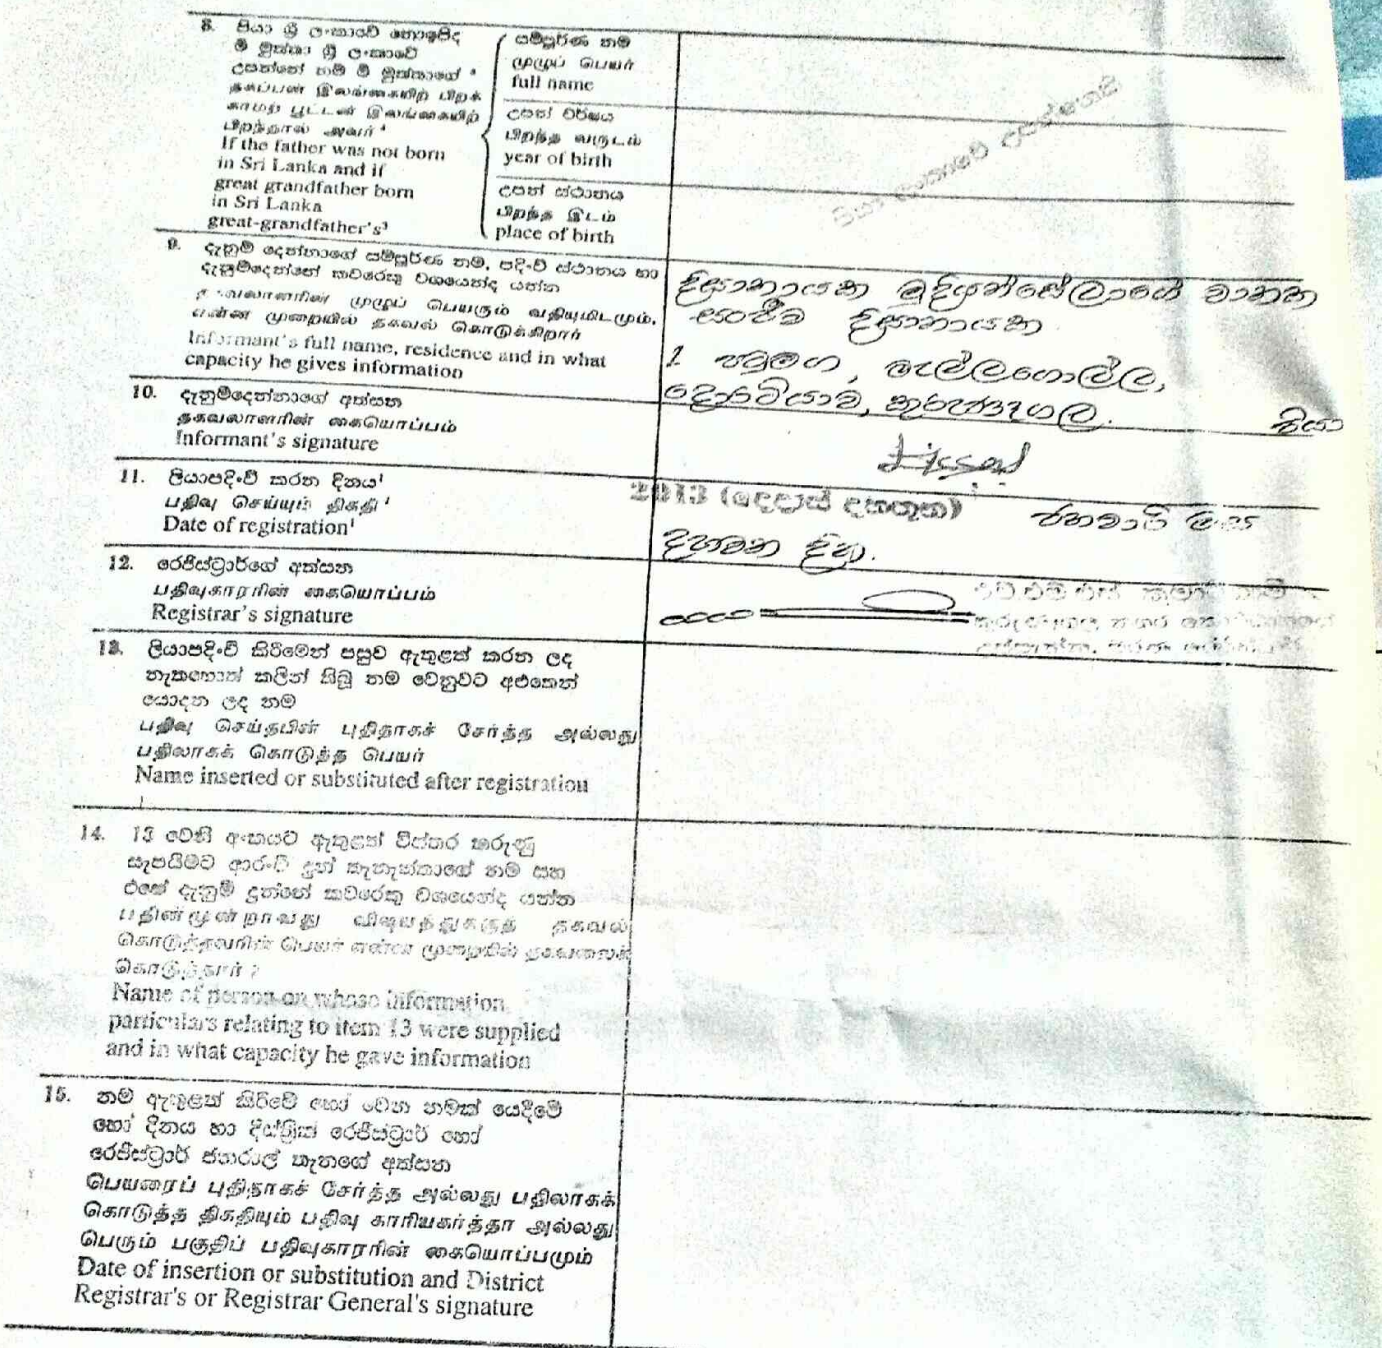 8. පියා ශ්‍රී ලංකාවේ නොඉපිද
මී මුත්තා ශ්‍රී ලංකාවේ
උපන්නේ නම් මී මුත්තාගේ
தகப்பன் இலங்கையிற் பிறக்
காமற் பூட்டன் இலங்கையிற்
பிறந்தால் அவர்
If the father was not born
in Sri Lanka and if
great grandfather born
in Sri Lanka
great-grandfather's³
සම්පූර්ණ නම
முழுப் பெயர்
full name
උපන් වර්ෂය
பிறந்த வருடம்
year of birth
උපන් ස්ථානය
பிறந்த இடம்
place of birth
ලංකාවේ උපන්නෙකි
9. දැනුම් දෙන්නාගේ සම්පූර්ණ නම, පදිංචි ස්ථානය හා
දැනුම්දෙන්නේ කවරෙකු වශයෙන්ද යන්න
தகவலாளரின் முழுப் பெயரும் வதியுமிடமும்,
என்ன முறையில் தகவல் கொடுக்கிறார்
Informant's full name, residence and in what
capacity he gives information
දිසානායක මුදියන්සේලාගේ චානක
සංජීව දිසානායක
1 පටුමග, මැල්ලගොල්ල,
දොරටියාව, කුරුණෑගල. පියා
10. දැනුම්දෙන්නාගේ අත්සන
தகவலாளரின் கையொப்பம்
Informant's signature
11. ලියාපදිංචි කරන දිනය¹
பதிவு செய்யும் திகதி¹
Date of registration¹
2013 (දෙදාස් දහතුන) ජනවාරි මස
දහවන දින.
12. රෙජිස්ට්‍රාර්ගේ අත්සන
பதிவுகாரரின் கையொப்பம்
Registrar's signature
13. ලියාපදිංචි කිරීමෙන් පසුව ඇතුළත් කරන ලද
නැතහොත් කලින් තිබූ නම වෙනුවට අළුතෙන්
යොදන ලද නම
பதிவு செய்தபின் புதிதாகச் சேர்த்த அல்லது
பதிலாகக் கொடுத்த பெயர்
Name inserted or substituted after registration
14. 13 වෙනි අංකයට ඇතුළත් විස්තර කරුණු
සැපයීමට ආරංචි දුන් තැනැත්තාගේ නම සහ
එසේ දැනුම් දුන්නේ කවරෙකු වශයෙන්ද යන්න
பதின்மூன்றாவது விஷயத்துக்குத் தகவல்
கொடுத்தவரின் பெயர் என்ன முறையில் தகவலைக்
கொடுத்தார் ?
Name of person on whose information,
particulars relating to item 13 were supplied
and in what capacity he gave information
15. නම ඇතුළත් කිරීමේ හෝ වෙන නමක් යෙදීමේ
හෝ දිනය හා දිස්ත්‍රික් රෙජිස්ට්‍රාර් හෝ
රෙජිස්ට්‍රාර් ජනරාල් තැනගේ අත්සන
பெயரைப் புதிதாகச் சேர்த்த அல்லது பதிலாகக்
கொடுத்த திகதியும் பதிவு காரியகர்த்தா அல்லது
பெரும் பகுதிப் பதிவுகாரரின் கையொப்பமும்
Date of insertion or substitution and District
Registrar's or Registrar General's signature